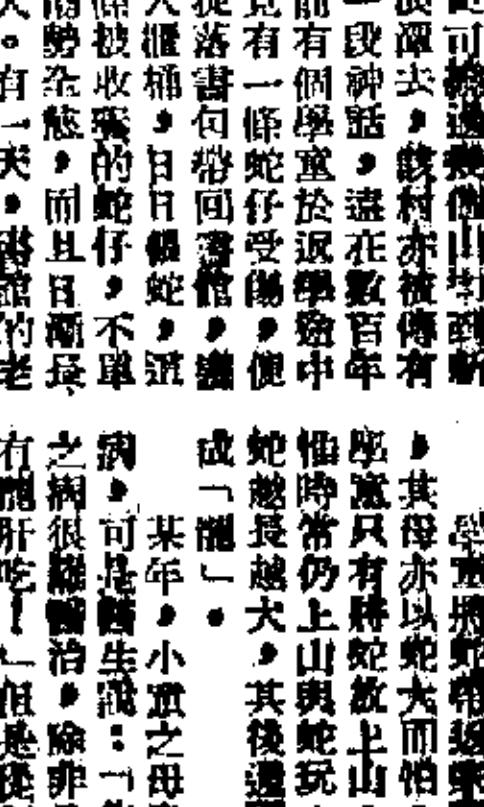 可過幾個山坳到新
潭去，該村亦被傳有
一段神話，遠在數百年
前有個學童於返學途中
見有一條蛇仔受傷，便
從落書包帶回書館，
入櫃桶，日日餵蛇，這
條被收養的蛇仔，不單
傷勢全愈，而且日漸長
大。有一天，書館的老
學童將蛇帶返家
，其母亦以蛇大而怕
只有將蛇放上山
惟時常仍上山與蛇玩
蛇越長越大，其後還
成「龍」。
某年，小童之母
病，可是醫生說：「
之病很難醫治，除非
有龍肝吃！」但是從